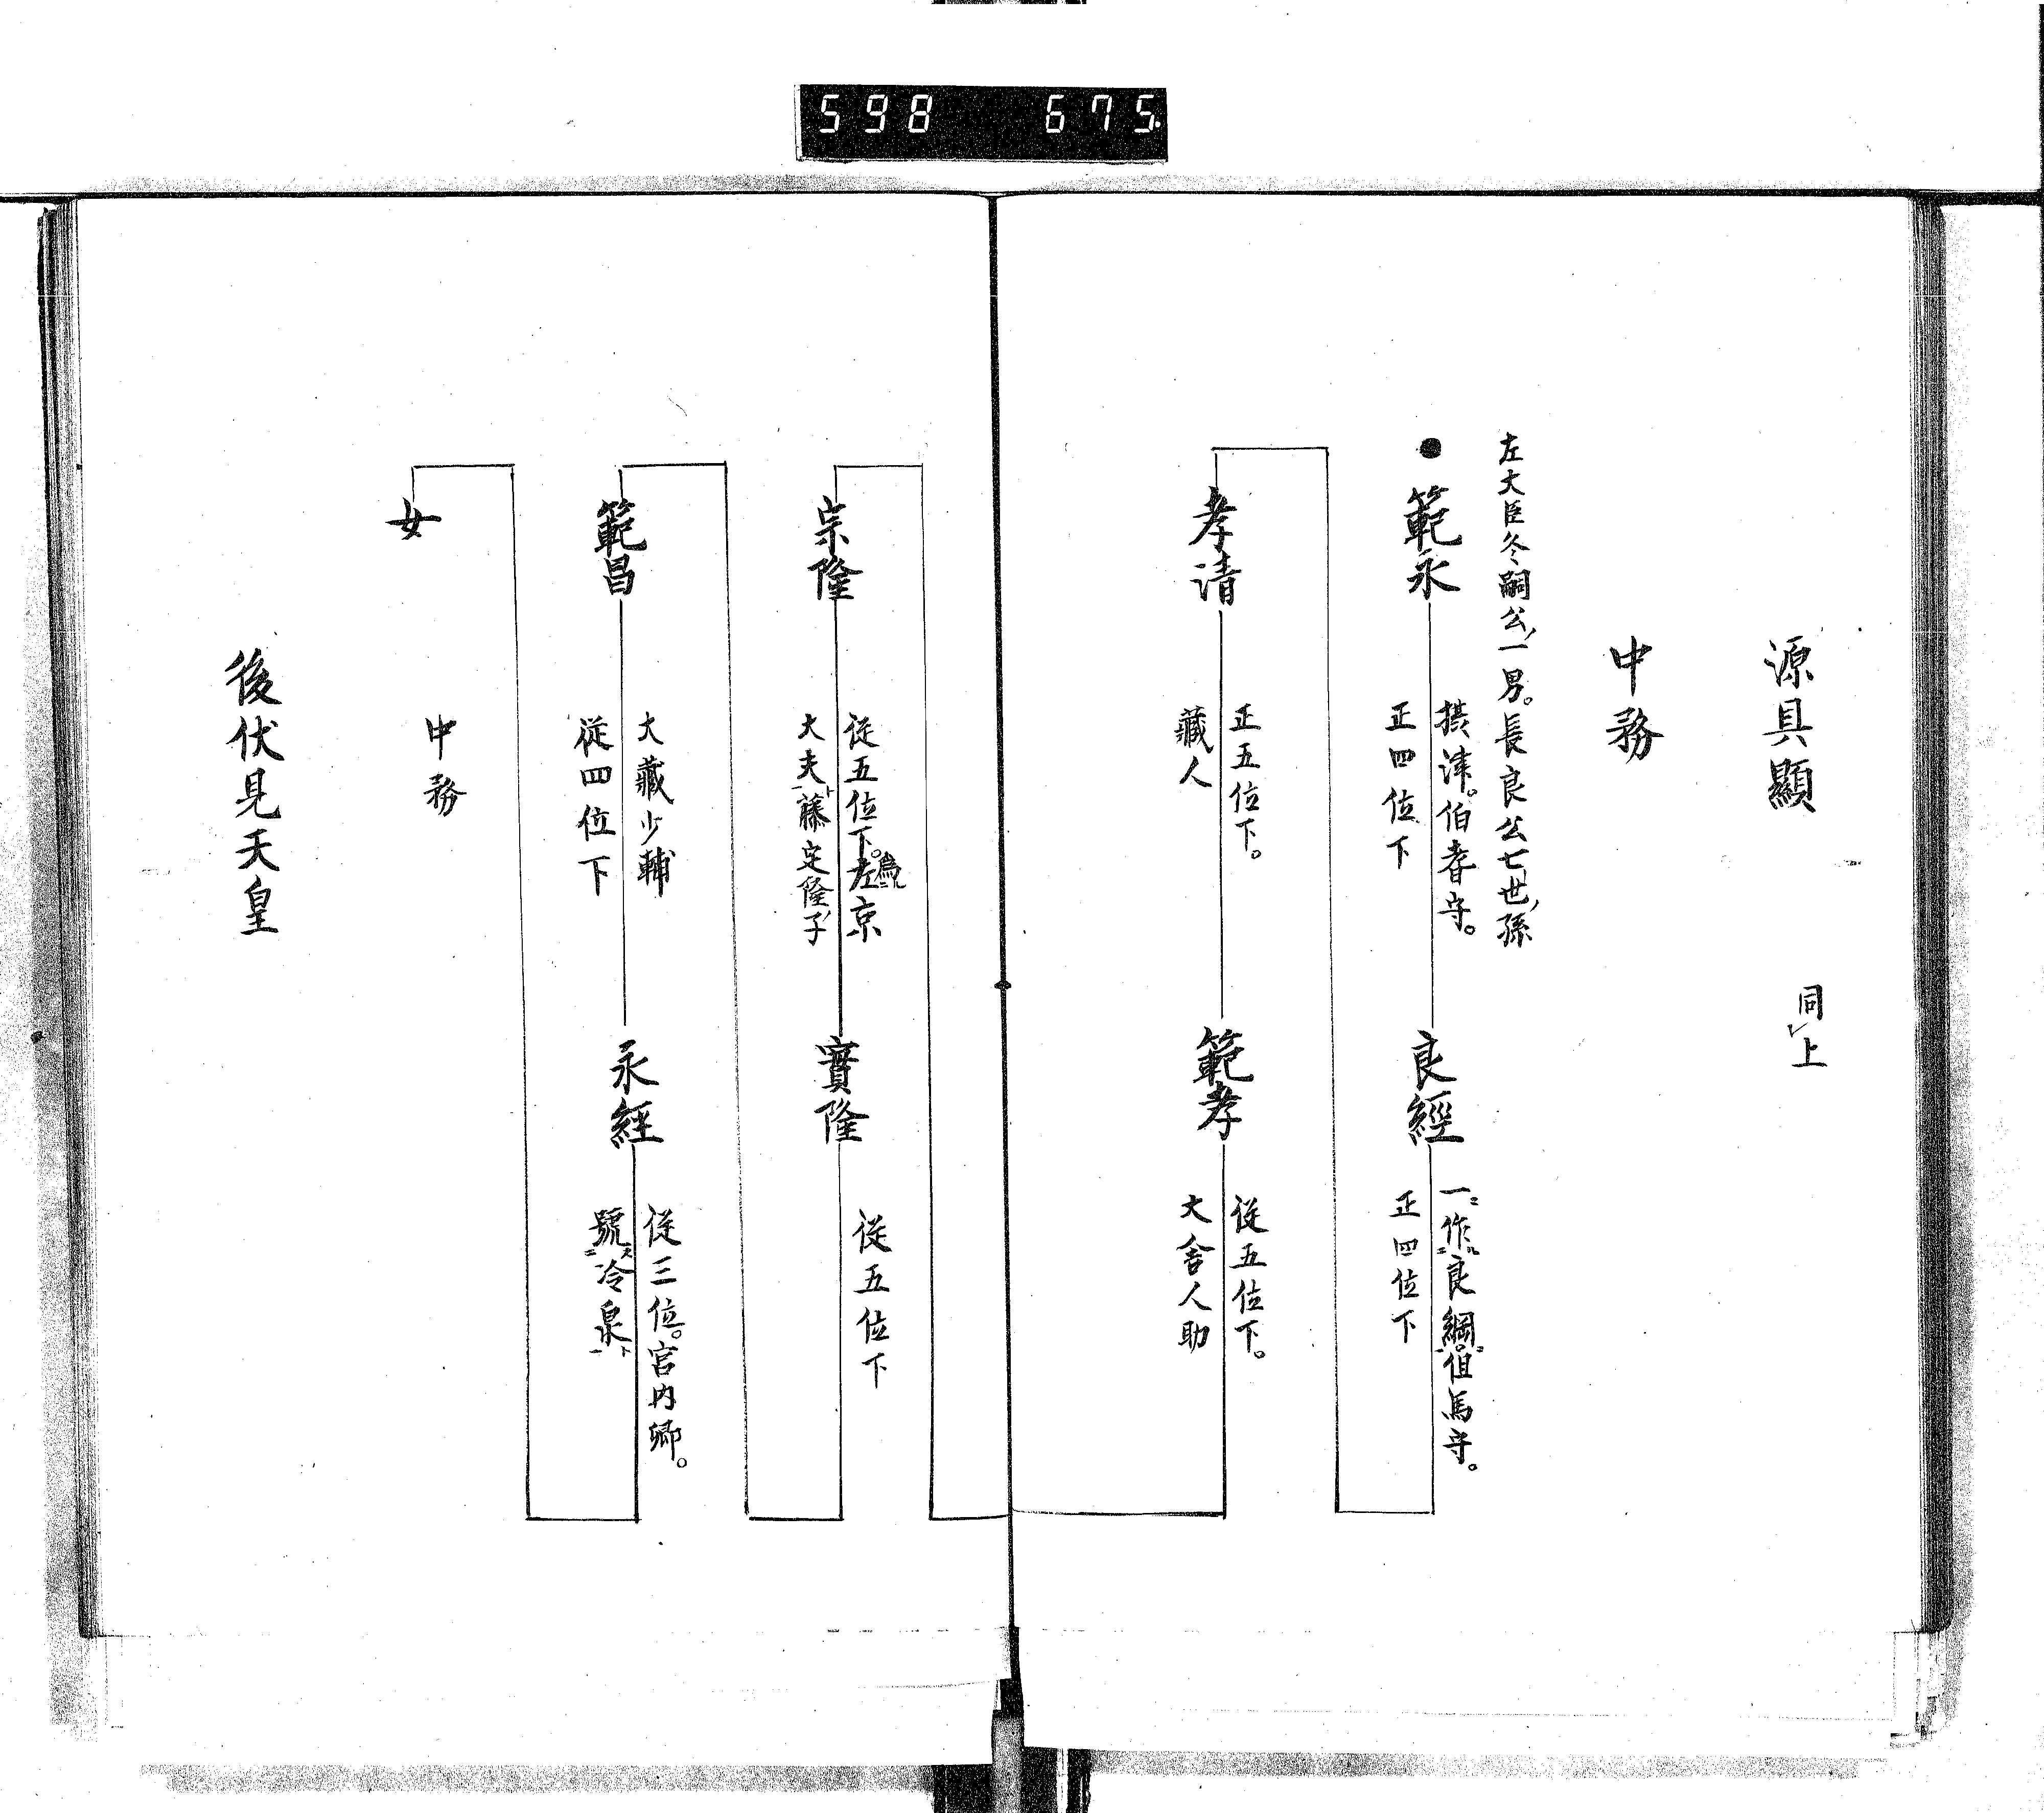 598 675
源具顯 同上
中務
左大臣冬嗣公一男。長良公七世孫
範永
摂津。伯耆守。
正四位下
良經
一作良綱。但馬守。
正四位下
孝清
正五位下。
藏人
範孝
従五位下。
大舎人助
宗隆
従五位下。為左京
大夫藤定隆子
實隆
従五位下
範昌
大藏少輔
従四位下
永經
従三位。宮内卿。
號冷泉
女
中務
後伏見天皇